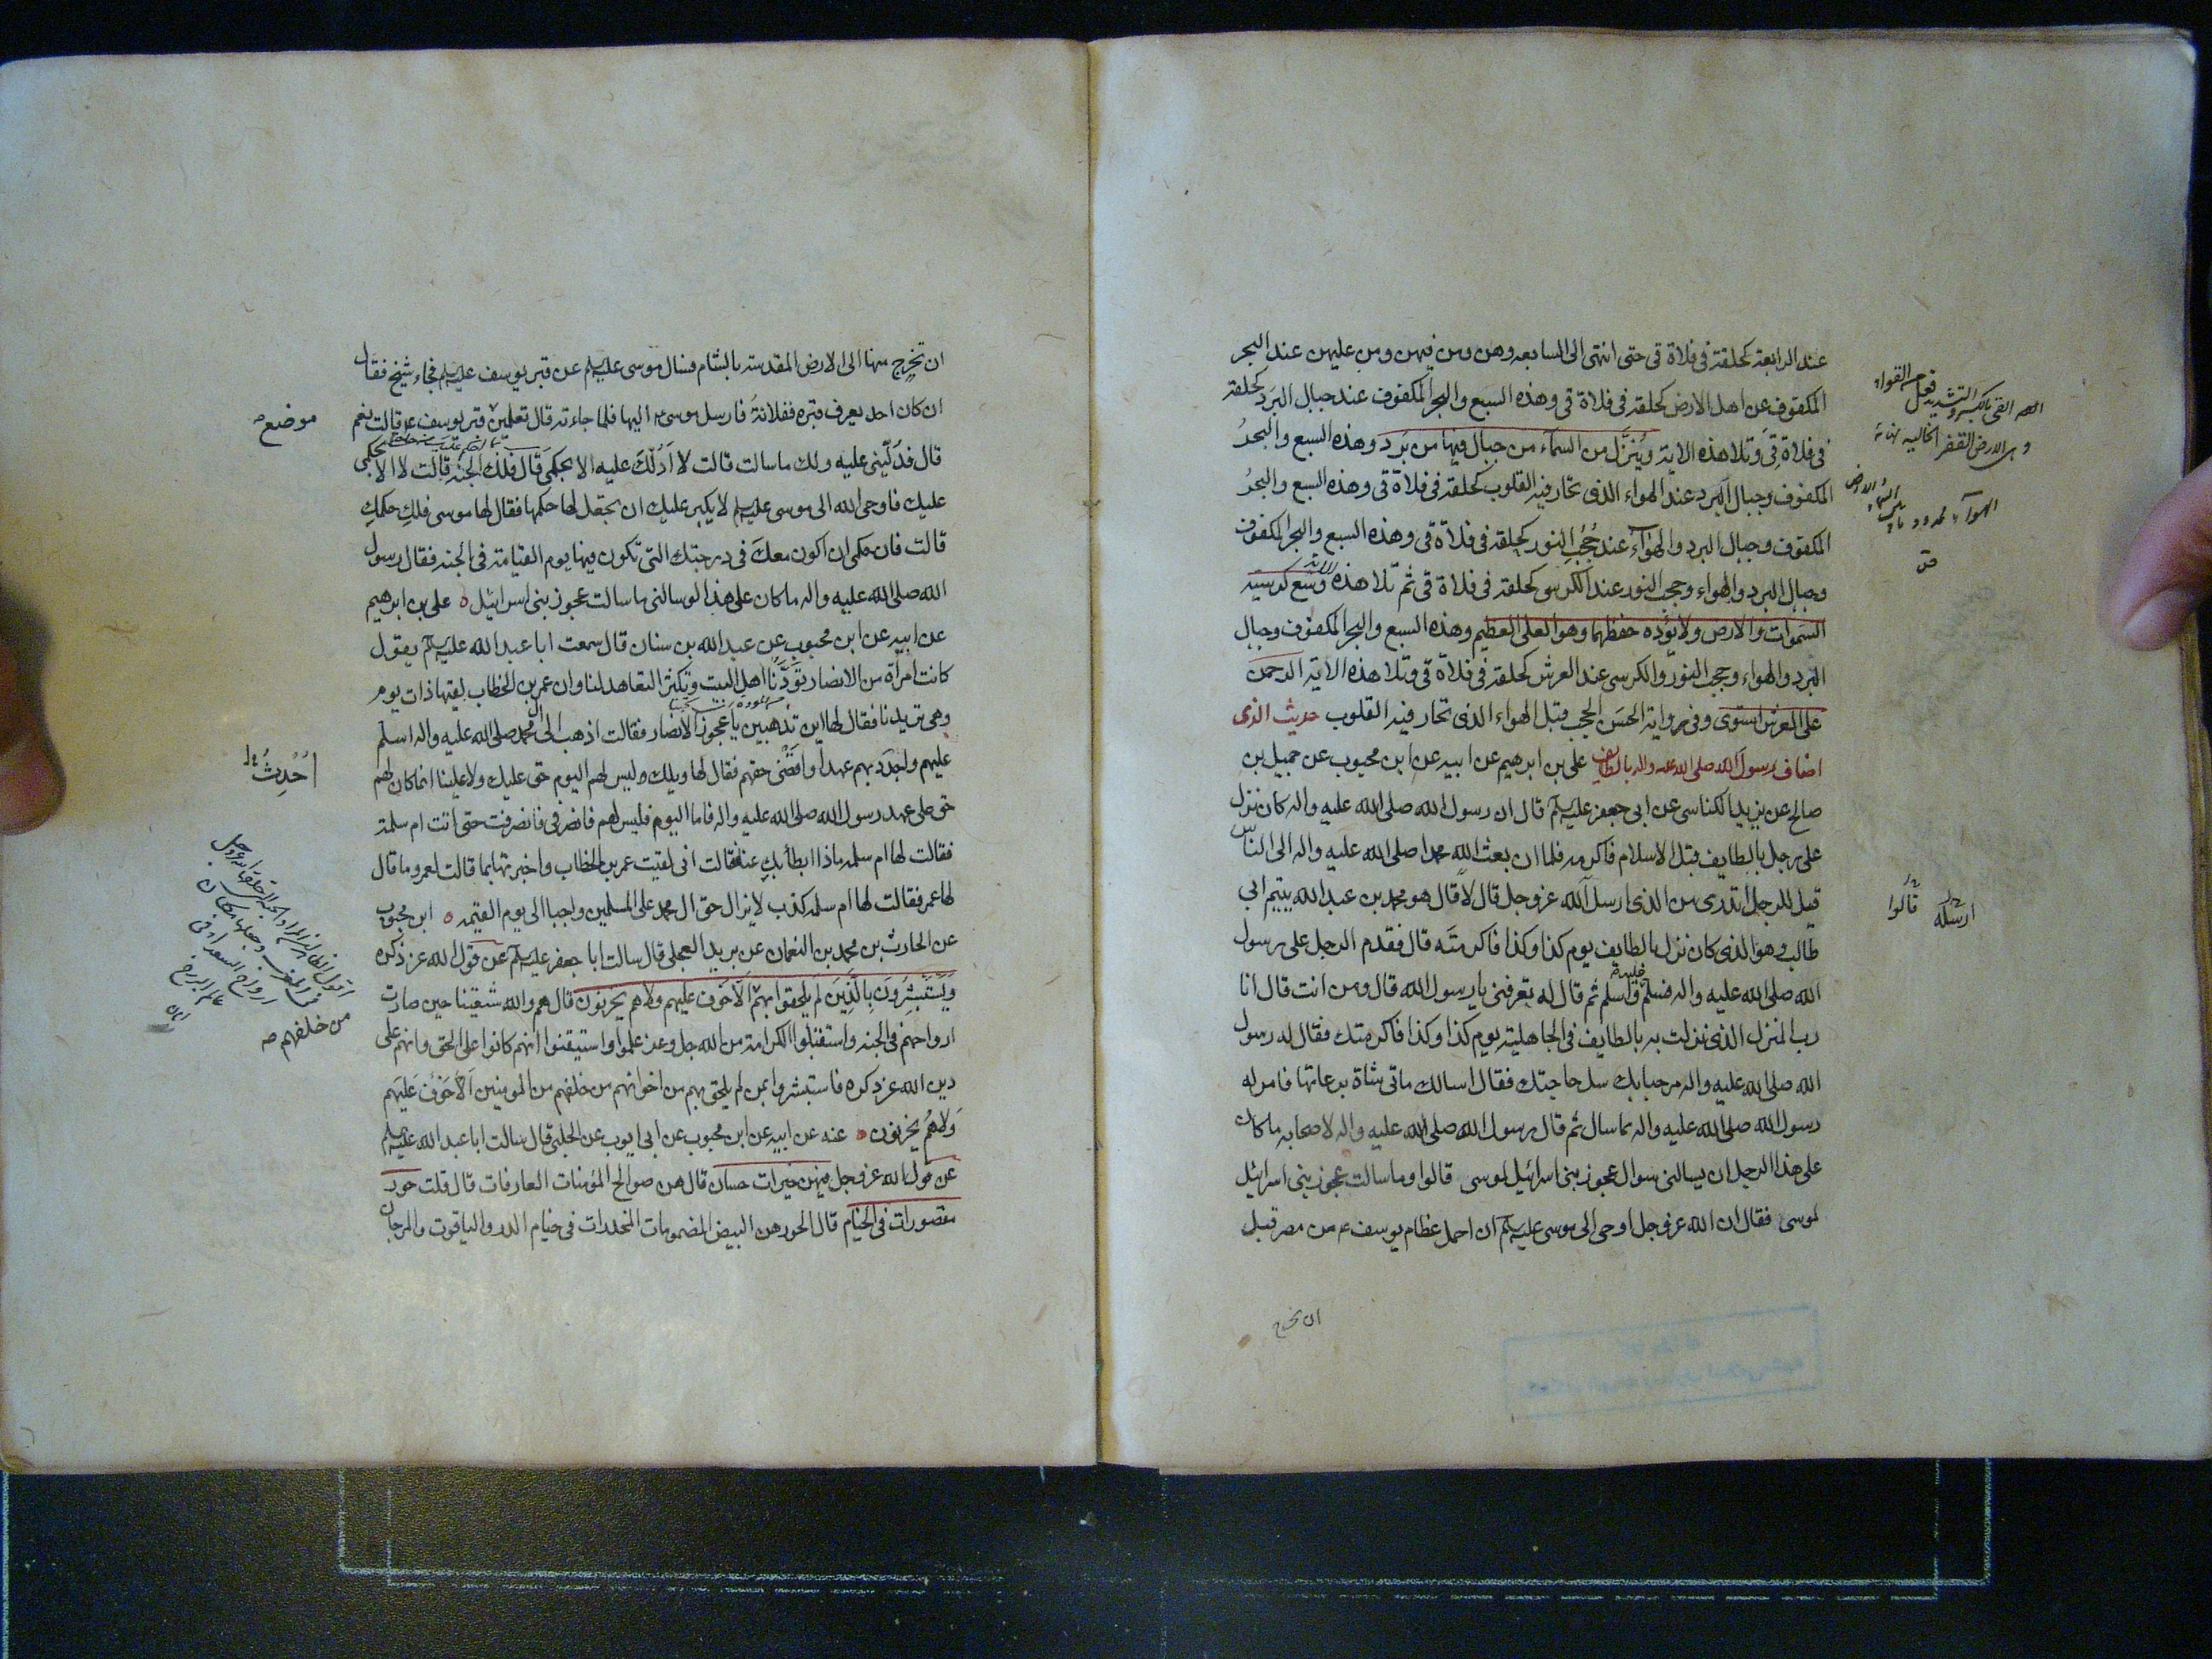 عند الرابعة كحلقة فى فلاة قى حتى انتهى الى السابعه وهن ومن فيهن ومن عليهن عند البحر
المكفوف عن اهل الارض كحلقة فى فلاة قى وهذه السبع والبحر المكفوف عند جبال البرد كحلقة
فى فلاة قى وتلا هذه الاية وينزل من السماء من جبال فيها من برد وهذه السبع والبحر
المكفوف وجبال البرد عند الهواء الذى تحار فيه القلوب كحلقة فى فلاة قى وهذه السبع والبحر
المكفوف وجبال البرد والهواء عند حجب النور كحلقة فى فلاة قى وهذه السبع والبحر المكفوف
وجبال البرد والهواء وحجب النور عند الكرسى كحلقة فى فلاة قى ثم تلا هذه الاية وسع كرسيه
السموات والارض ولا يؤده حفظهما وهو العلى العظيم وهذه السبع والبحر المكفوف وجبال
البرد والهواء وحجب النور والكرسى عند العرش كحلقة فى فلاة قى وتلا هذه الاية الرحمن
على العرش استوى وفى رواية الحسن الحجب قبل الهواء الذى تحار فيه القلوب حديث الذى
اضاف رسول الله صلى الله عليه واله بالطايف على بن ابرهيم عن ابيه عن ابن محبوب عن جميل بن
صالح عن يزيد الكناسى عن ابى جعفر عليه السلم قال ان رسول الله صلى الله عليه واله كان نزل
على رجل بالطايف قبل الاسلام فاكرمه فلما ان بعث الله محمدا صلى الله عليه واله الى الناس
قيل للرجل اتدرى من الذى ارسل الله عز وجل قال لا قال هو محمد بن عبد الله يتيم ابى
طالب وهو الذى كان نزل بالطايف يوم كذا وكذا فاكرمته قال فقدم الرجل على رسول
الله صلى الله عليه واله فسلم عليه واسلم ثم قال له تعرفنى يا رسول الله قال ومن انت قال انا
رب المنزل الذى نزلت به بالطايف فى الجاهلية يوم كذا وكذا فاكرمتك فقال له رسول
الله صلى الله عليه واله مرحبا بك سل حاجتك فقال اسالك ماتى شاة برعاتها فامر له
رسول الله صلى الله عليه واله بما سال ثم قال رسول الله صلى الله عليه واله لاصحابه ما كان
على هذا الرجل ان يسالنى سوال عجوز بنى اسرائيل لموسى قالوا وما سالت عجوز بنى اسرائيل
لموسى فقال ان الله عز وجل اوحى الى موسى عليه السلم ان احمل عظام يوسف ع من مصر قبل
ان تخرج
القى بالكسر والتشديد فعل من القواء
وهى الارض القفر الخالية
ارسله
قالوا
ان تخرج منها الى الارض المقدسة بالشام فسال موسى عليه السلم عن قبر يوسف عليه السلم فجاء شيخ فقال
ان كان احد يعرف قبره ففلانة فارسل موسى ع اليها فلما جاءته قال تعلمين قبر يوسف ع قالت نعم
موضع
قال فدلينى عليه ولك ما سالت قالت لا ادلك عليه الا بحكمى قال فلك الجنة قالت لا الا بحكمى
عليك فاوحى الله الى موسى عليه السلم لا يكبر عليك ان تجعل لها حكمها فقال لها موسى فلك حكمك
قالت فان حكمى ان اكون معك فى درجتك التى تكون فيها يوم القيامة فى الجنه فقال رسول
الله صلى الله عليه واله ما كان على هذا لو سالنى ما سالت عجوز بنى اسرائيل ه على بن ابرهيم
عن ابيه عن ابن محبوب عن عبد الله بن سنان قال سمعت ابا عبد الله عليه السلم يقول
كانت امراة من الانصار تودنا اهل البيت وتكثر التعاهد لنا وان عمر بن الخطاب لقيها ذات يوم
وهى تريدنا فقال لها اين تذهبين يا عجوز الانصار فقالت اذهب الى ال محمد صلى الله عليه واله اسلم
عليهم واجدد بهم عهدا واقضى حقهم فقال لها ويلك وليس لهم اليوم حق عليك ولا علينا انما كان لهم
احدث
حق على عهد رسول الله صلى الله عليه واله فاما اليوم فليس لهم فانصرفى فانصرفت حتى اتت ام سلمة
فقالت لها ام سلمه ماذا ابطأ بك عنا فقالت انى لقيت عمر بن الخطاب واخبرتها بما قالت لعمر وما قال
لها عمر فقالت لها ام سلمه كذب لا يزال حق ال محمد على المسلمين واجبا الى يوم القيمه ه ابن محبوب
عن الحارث بن محمد بن النعمان عن بريد العجلى قال سالت ابا جعفر عليه السلم عن قول الله عز ذكره
ويستبشرون بالذين لم يلحقوا بهم الا خوف عليهم ولا هم يحزنون قال هم والله شيعتنا حين صارت
من خلفهم
ارواحهم فى الجنه واستقبلوا الكرامة من الله جل وعز علموا واستيقنوا انهم كانوا على الحق وانهم على
دين الله عز ذكره فاستبشروا بمن لم يلحق بهم من اخوانهم من خلفهم من المومنين الا خوف عليهم
ولا هم يحزنون ه عنه عن ابيه عن ابن محبوب عن ابى ايوب عن الحلبى قال سالت ابا عبد الله عليه السلم
عن قول الله عز وجل فيهن خيرات حسان قال هن صوالح المؤمنات العارفات قال قلت حور
مقصورات فى الخيام قال الحور هن البيض المضمومات المخدرات فى خيام الدر والياقوت والمرجان